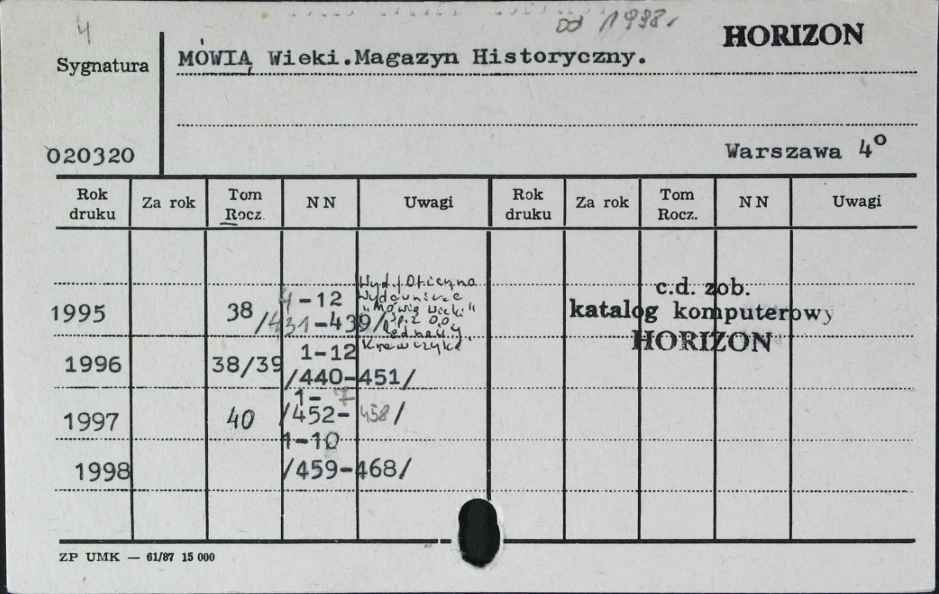 4
od 1998r
HORIZON
Sygnatura
MÓWIĄ Wieki.Magazyn Historyczny.
020320
Warszawa 4°
Rok druku Za rok Tom Rocz. NN Uwagi Rok druku Za rok Tom Rocz. NN Uwagi
Wyd./Oficyna
Wydawnicza
"Mówią wieki"
1995 38 4-12
/431-439/ Sp. z o.o.
c.d. zob.
katalog komputerowy
HORIZON
Krawczyka
1996 38/39 1-12
/440-451/
1997 40 1-7
/452-458/
1998 1-10
/459-468/
ZP UMK — 61/87 15 000